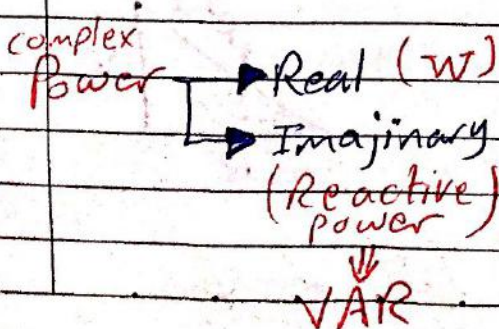 complex
Power
Real (W)
Imajinary
(Reactive
power)
VAR